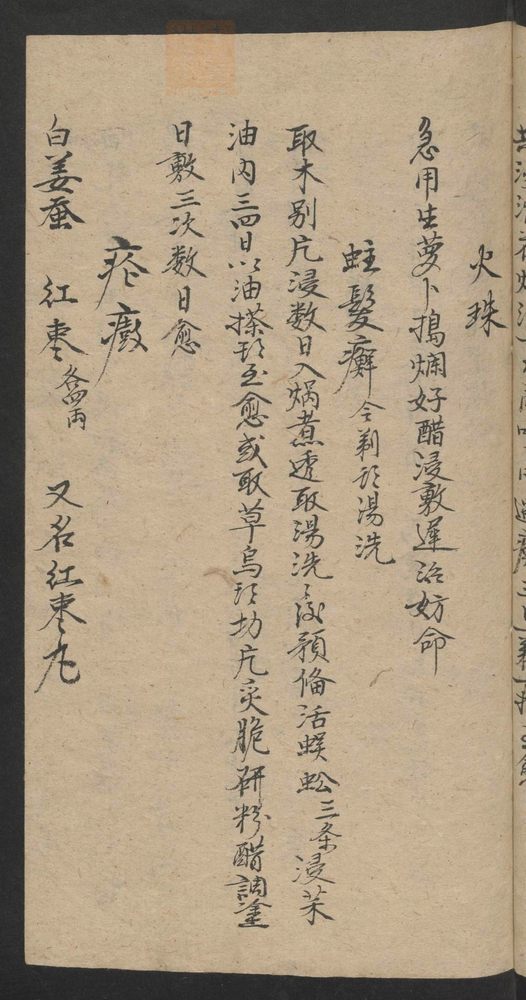 火珠
急用生萝卜搗烂好醋浸敷遲治妨命
蛀髮癬 令剃头湯洗
取木别片浸数日入煱煮透取湯洗後预俻活蜈蚣三条浸菜
油内三四日以油搽头立愈或取草烏头切片炙脆研粉醋調塗
日敷三次数日愈
痧癥
白姜蚕 红枣各四両 又名红枣丸